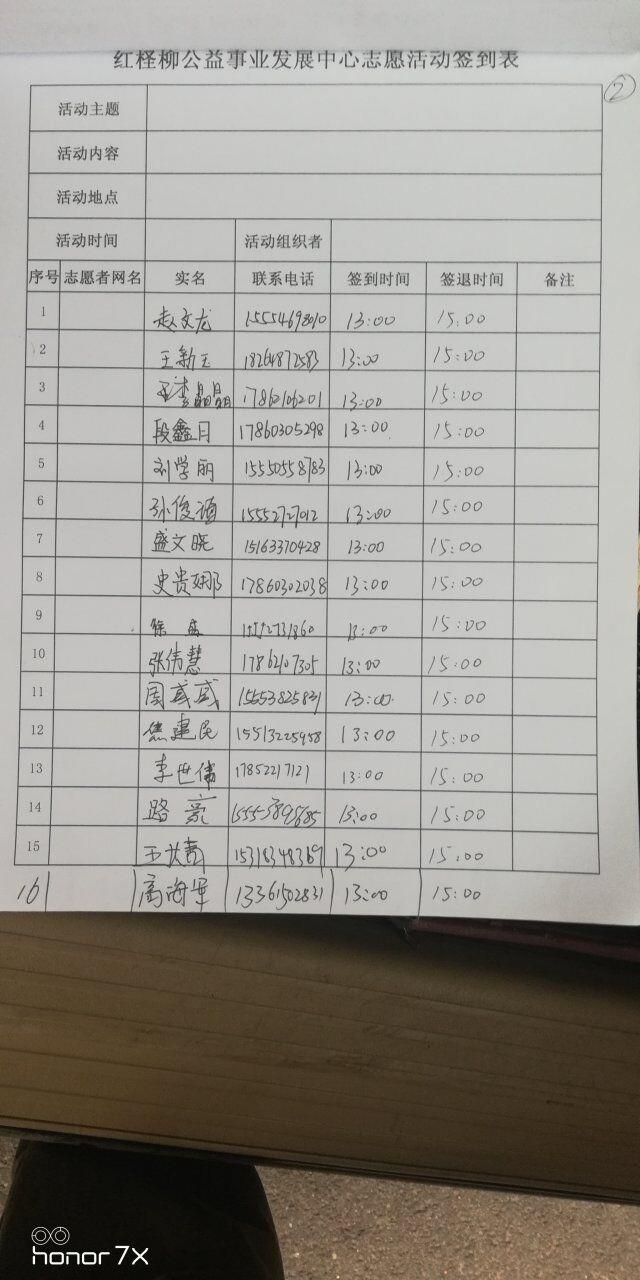 红柽柳公益事业发展中心志愿活动签到表
②
活动主题
活动内容
活动地点
活动时间 活动组织者
序号 志愿者网名 实名 联系电话 签到时间 签退时间 备注
1 赵文龙 15554698010 13:00 15:00
2 王新玉 18264872583 13:00 15:00
3 李晶晶 17862106201 13:00 15:00
4 段鑫月 17860305298 13:00 15:00
5 刘学丽 15550558783 13:00 15:00
6 孙俊 15552727012 13:00 15:00
7 盛文晓 15163370428 13:00 15:00
8 史贵娜 17860302038 13:00 15:00
9 徐 13:00 15:00
10 张伟慧 17862107305 13:00 15:00
11 周 15553825831 13:00 15:00
12 焦建民 15513225958 13:00 15:00
13 李世伟 17852217121 13:00 15:00
14 路豪 13:00 15:00
15 王 15318348369 13:00 15:00
16 高海军 13361502831 13:00 15:00
honor 7X